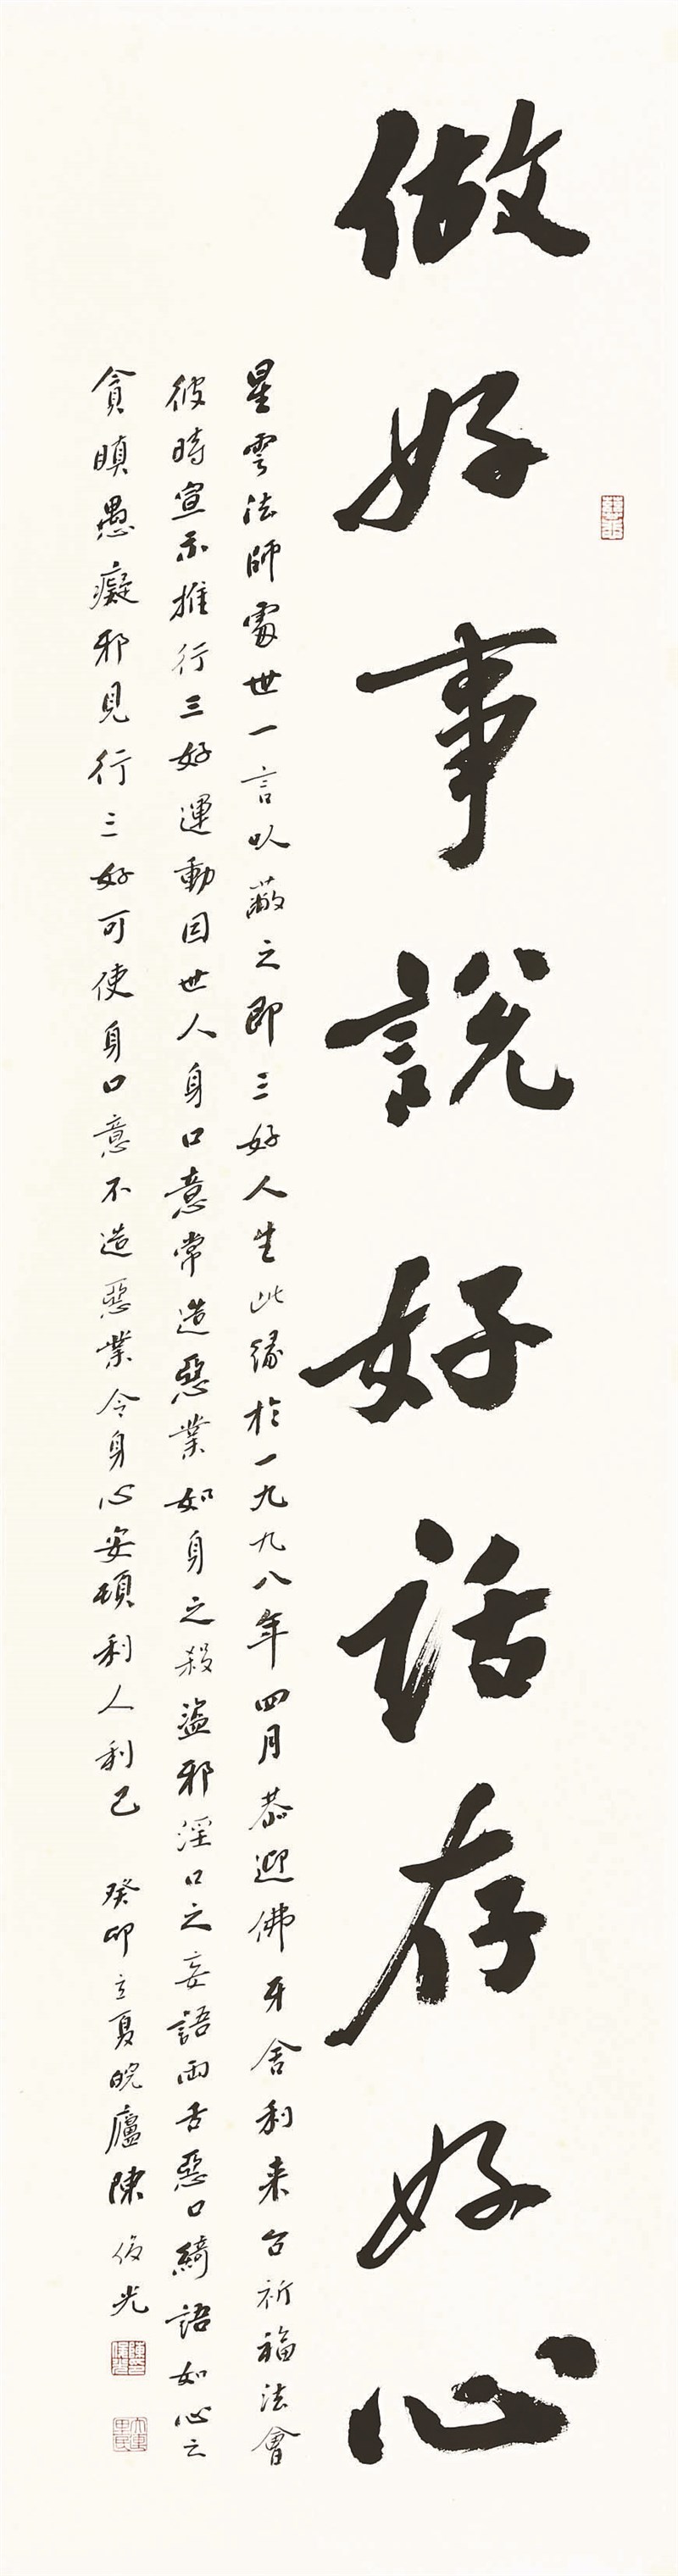 做好事說好話存好心
星雲法師處世一言以蔽之即三好人生此緣於一九九八年四月恭迎佛牙舍利来台祈福法會
彼時宣示推行三好運動因世人身口意常造惡業如身之殺盜邪淫口之妄語兩舌惡口綺語如心之
貪瞋愚癡邪見行三好可使身口意不造惡業令身心安頓利人利己
癸卯立夏皖廬陳俊光